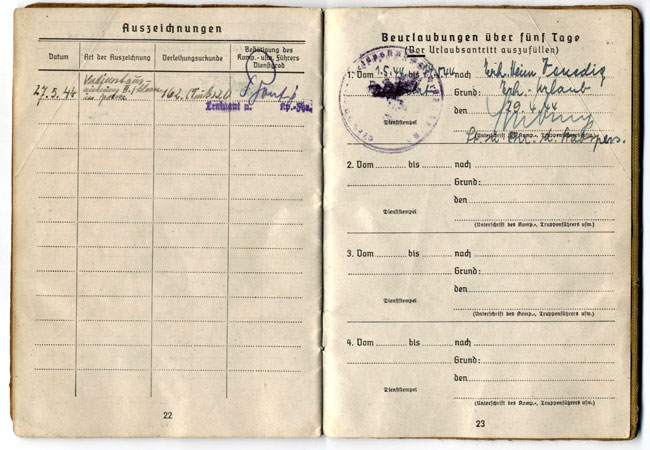 Auszeichnungen
Datum Art der Auszeichnung Verleihungsurkunde Bestätigung des Komp.- usw. Führers Dienstgrad
27.5.44 162.
Leutnant u. Kp.-Fhr.
22
Beurlaubungen über fünf Tage
(Vor Urlaubsantritt auszufüllen)
1. Vom 1.5.44 bis nach Erh. Heim Venedig
Grund: Erh.-Urlaub
den 29.4.44
Dienststempel
(Unterschrift des Komp.-, Truppenführers usw.)
2. Vom bis nach
Grund:
den
Dienststempel
(Unterschrift des Komp.-, Truppenführers usw.)
3. Vom bis nach
Grund:
den
Dienststempel
(Unterschrift des Komp.-, Truppenführers usw.)
4. Vom bis nach
Grund:
den
Dienststempel
(Unterschrift des Komp.-, Truppenführers usw.)
23